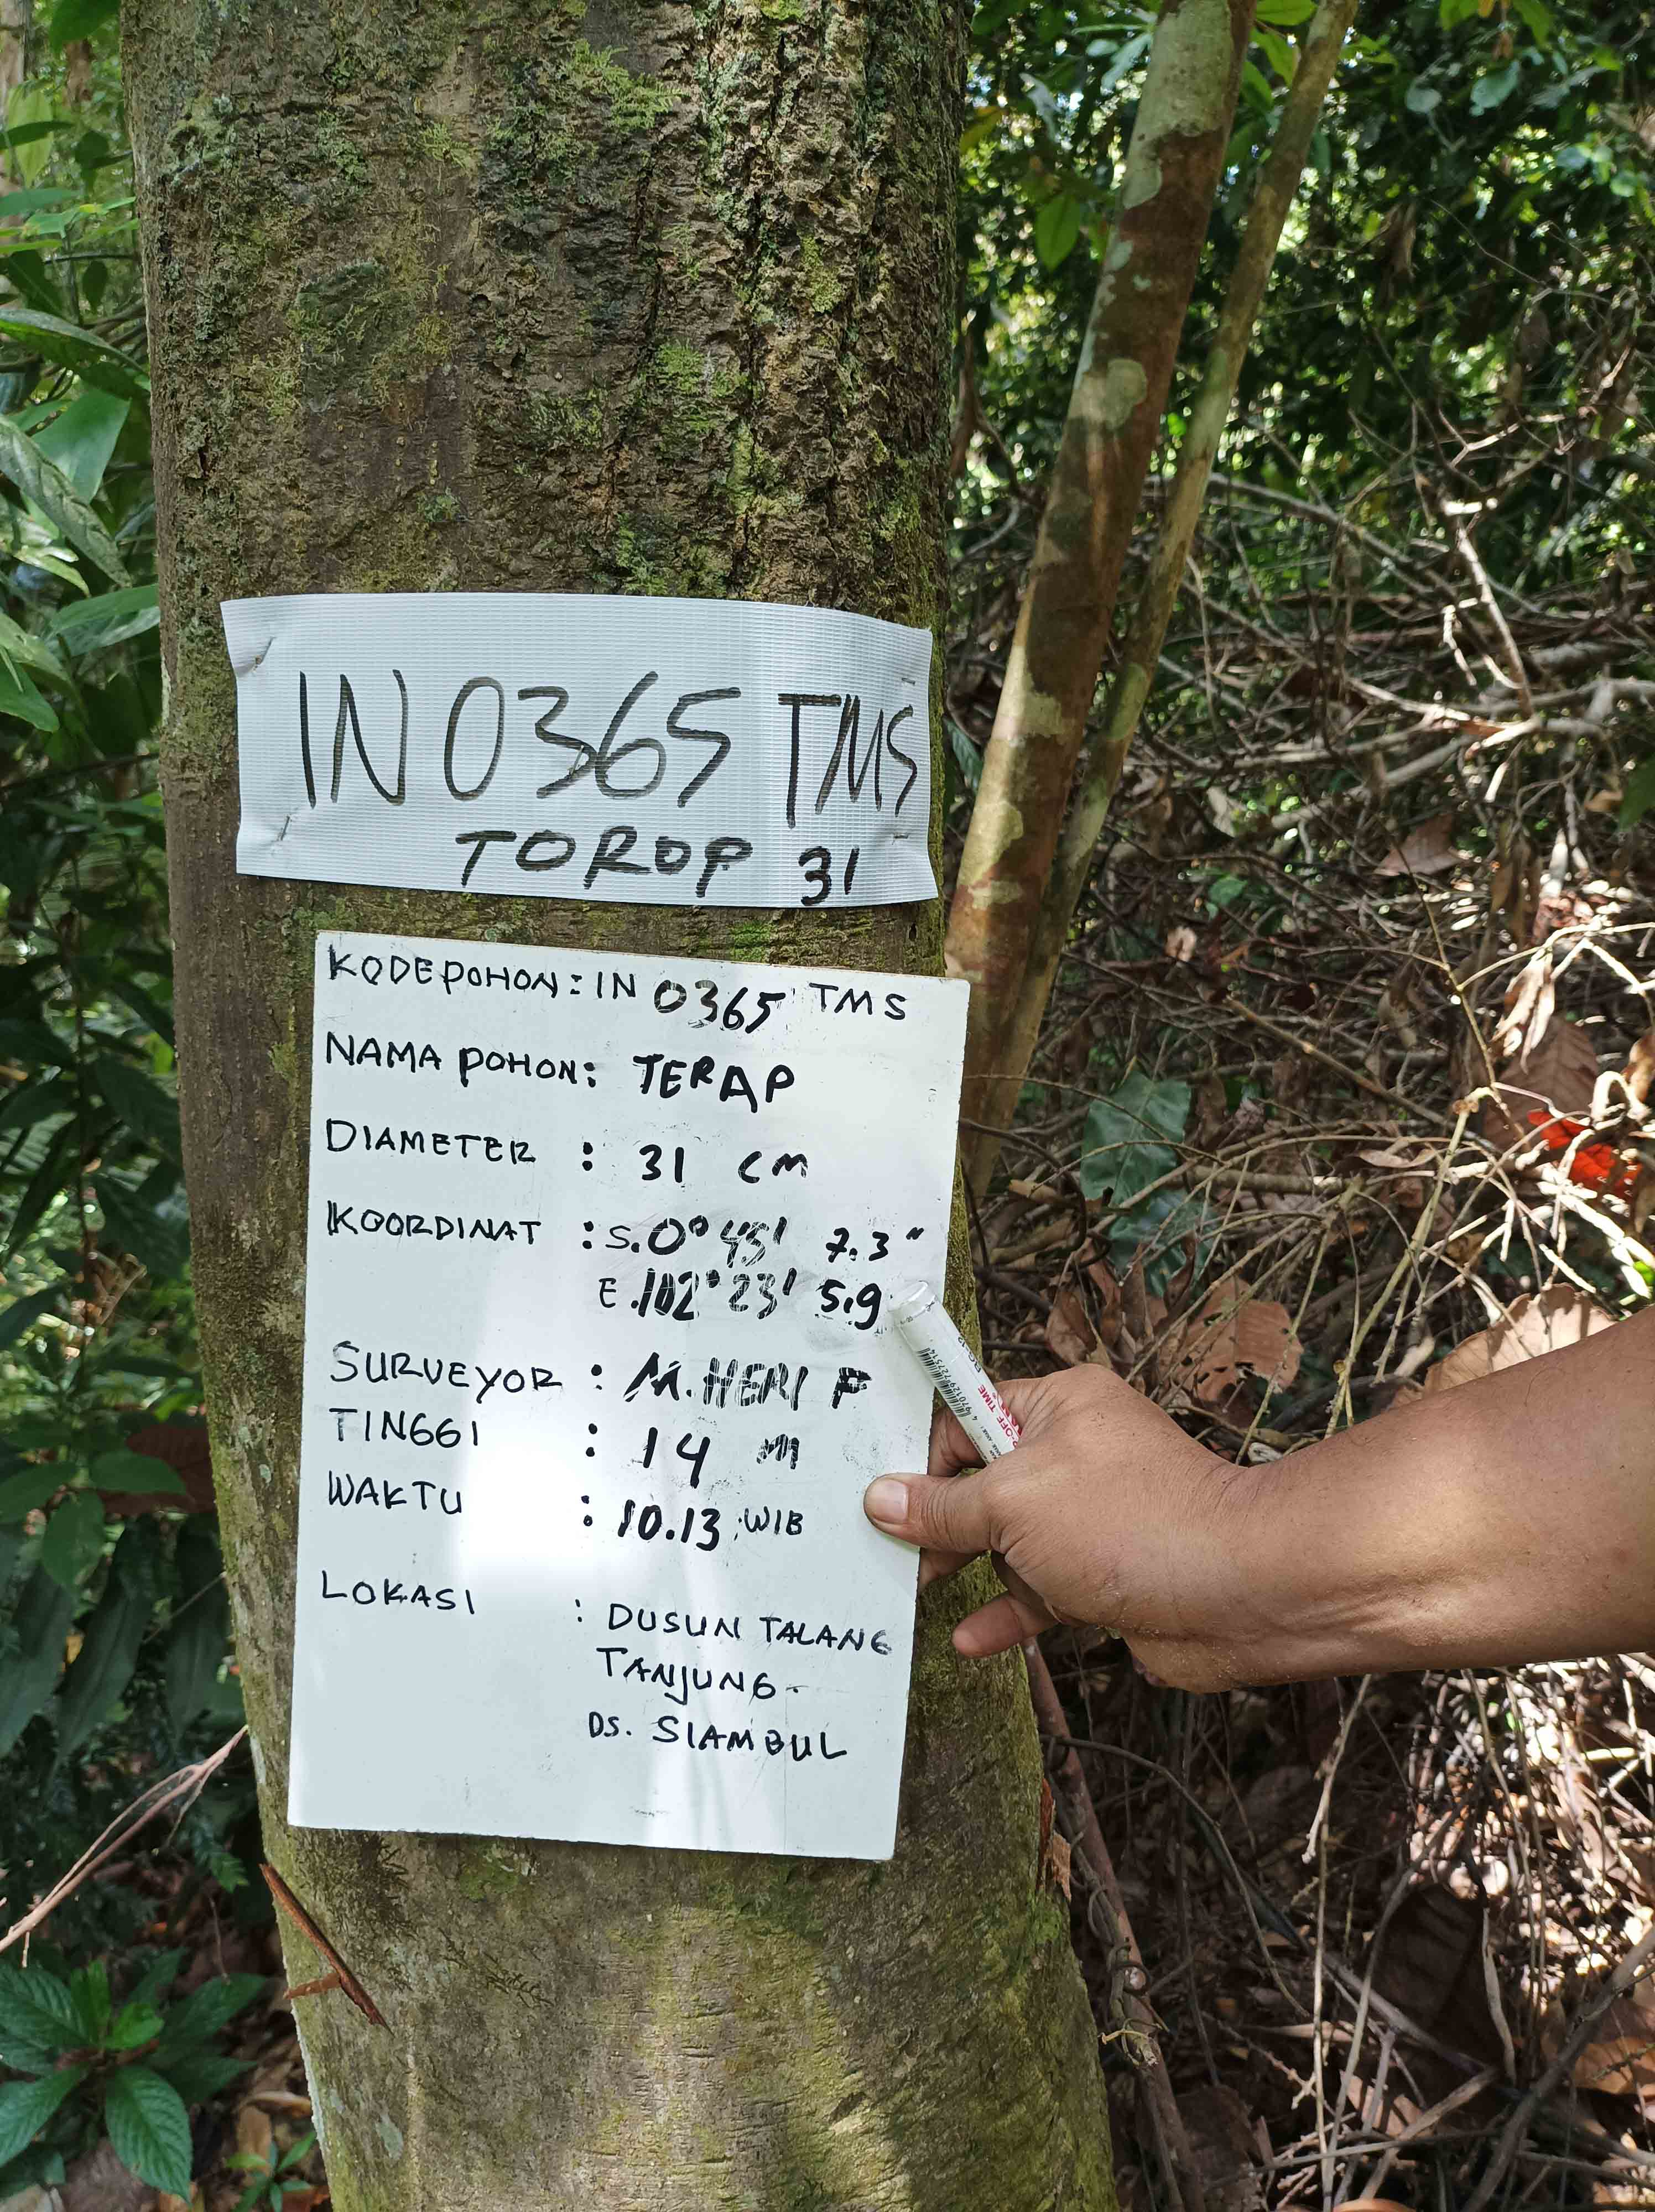 IN 0365 TMS
TOROP 31
KODE POHON : IN 0365 TMS
NAMA POHON : TERAP
DIAMETER : 31 CM
KOORDINAT : S. 0° 45' 7.3"
E. 102° 23' 5.9
SURVEYOR : M. HERI P
TINGGI : 14 m
WAKTU : 10.13 WIB
LOKASI : DUSUN TALANG
TANJUNG.
DS. SIAMBUL